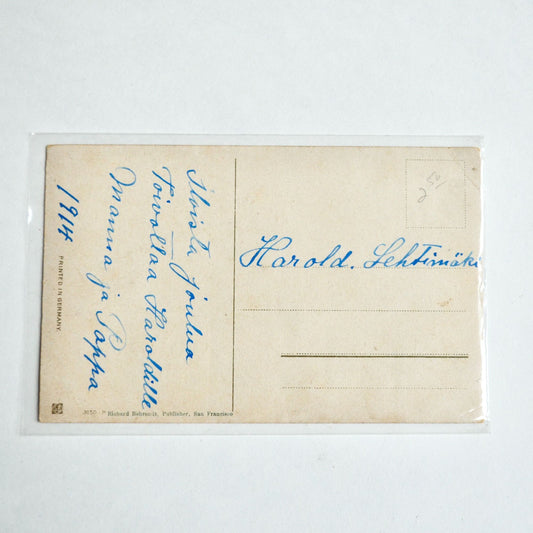 Iloista Joulua
Toivottaa Haroldille
Mamma ja Pappa
1914
Harold. Lehtimäki
PRINTED IN GERMANY.
Richard Behrendt, Publisher, San Francisco